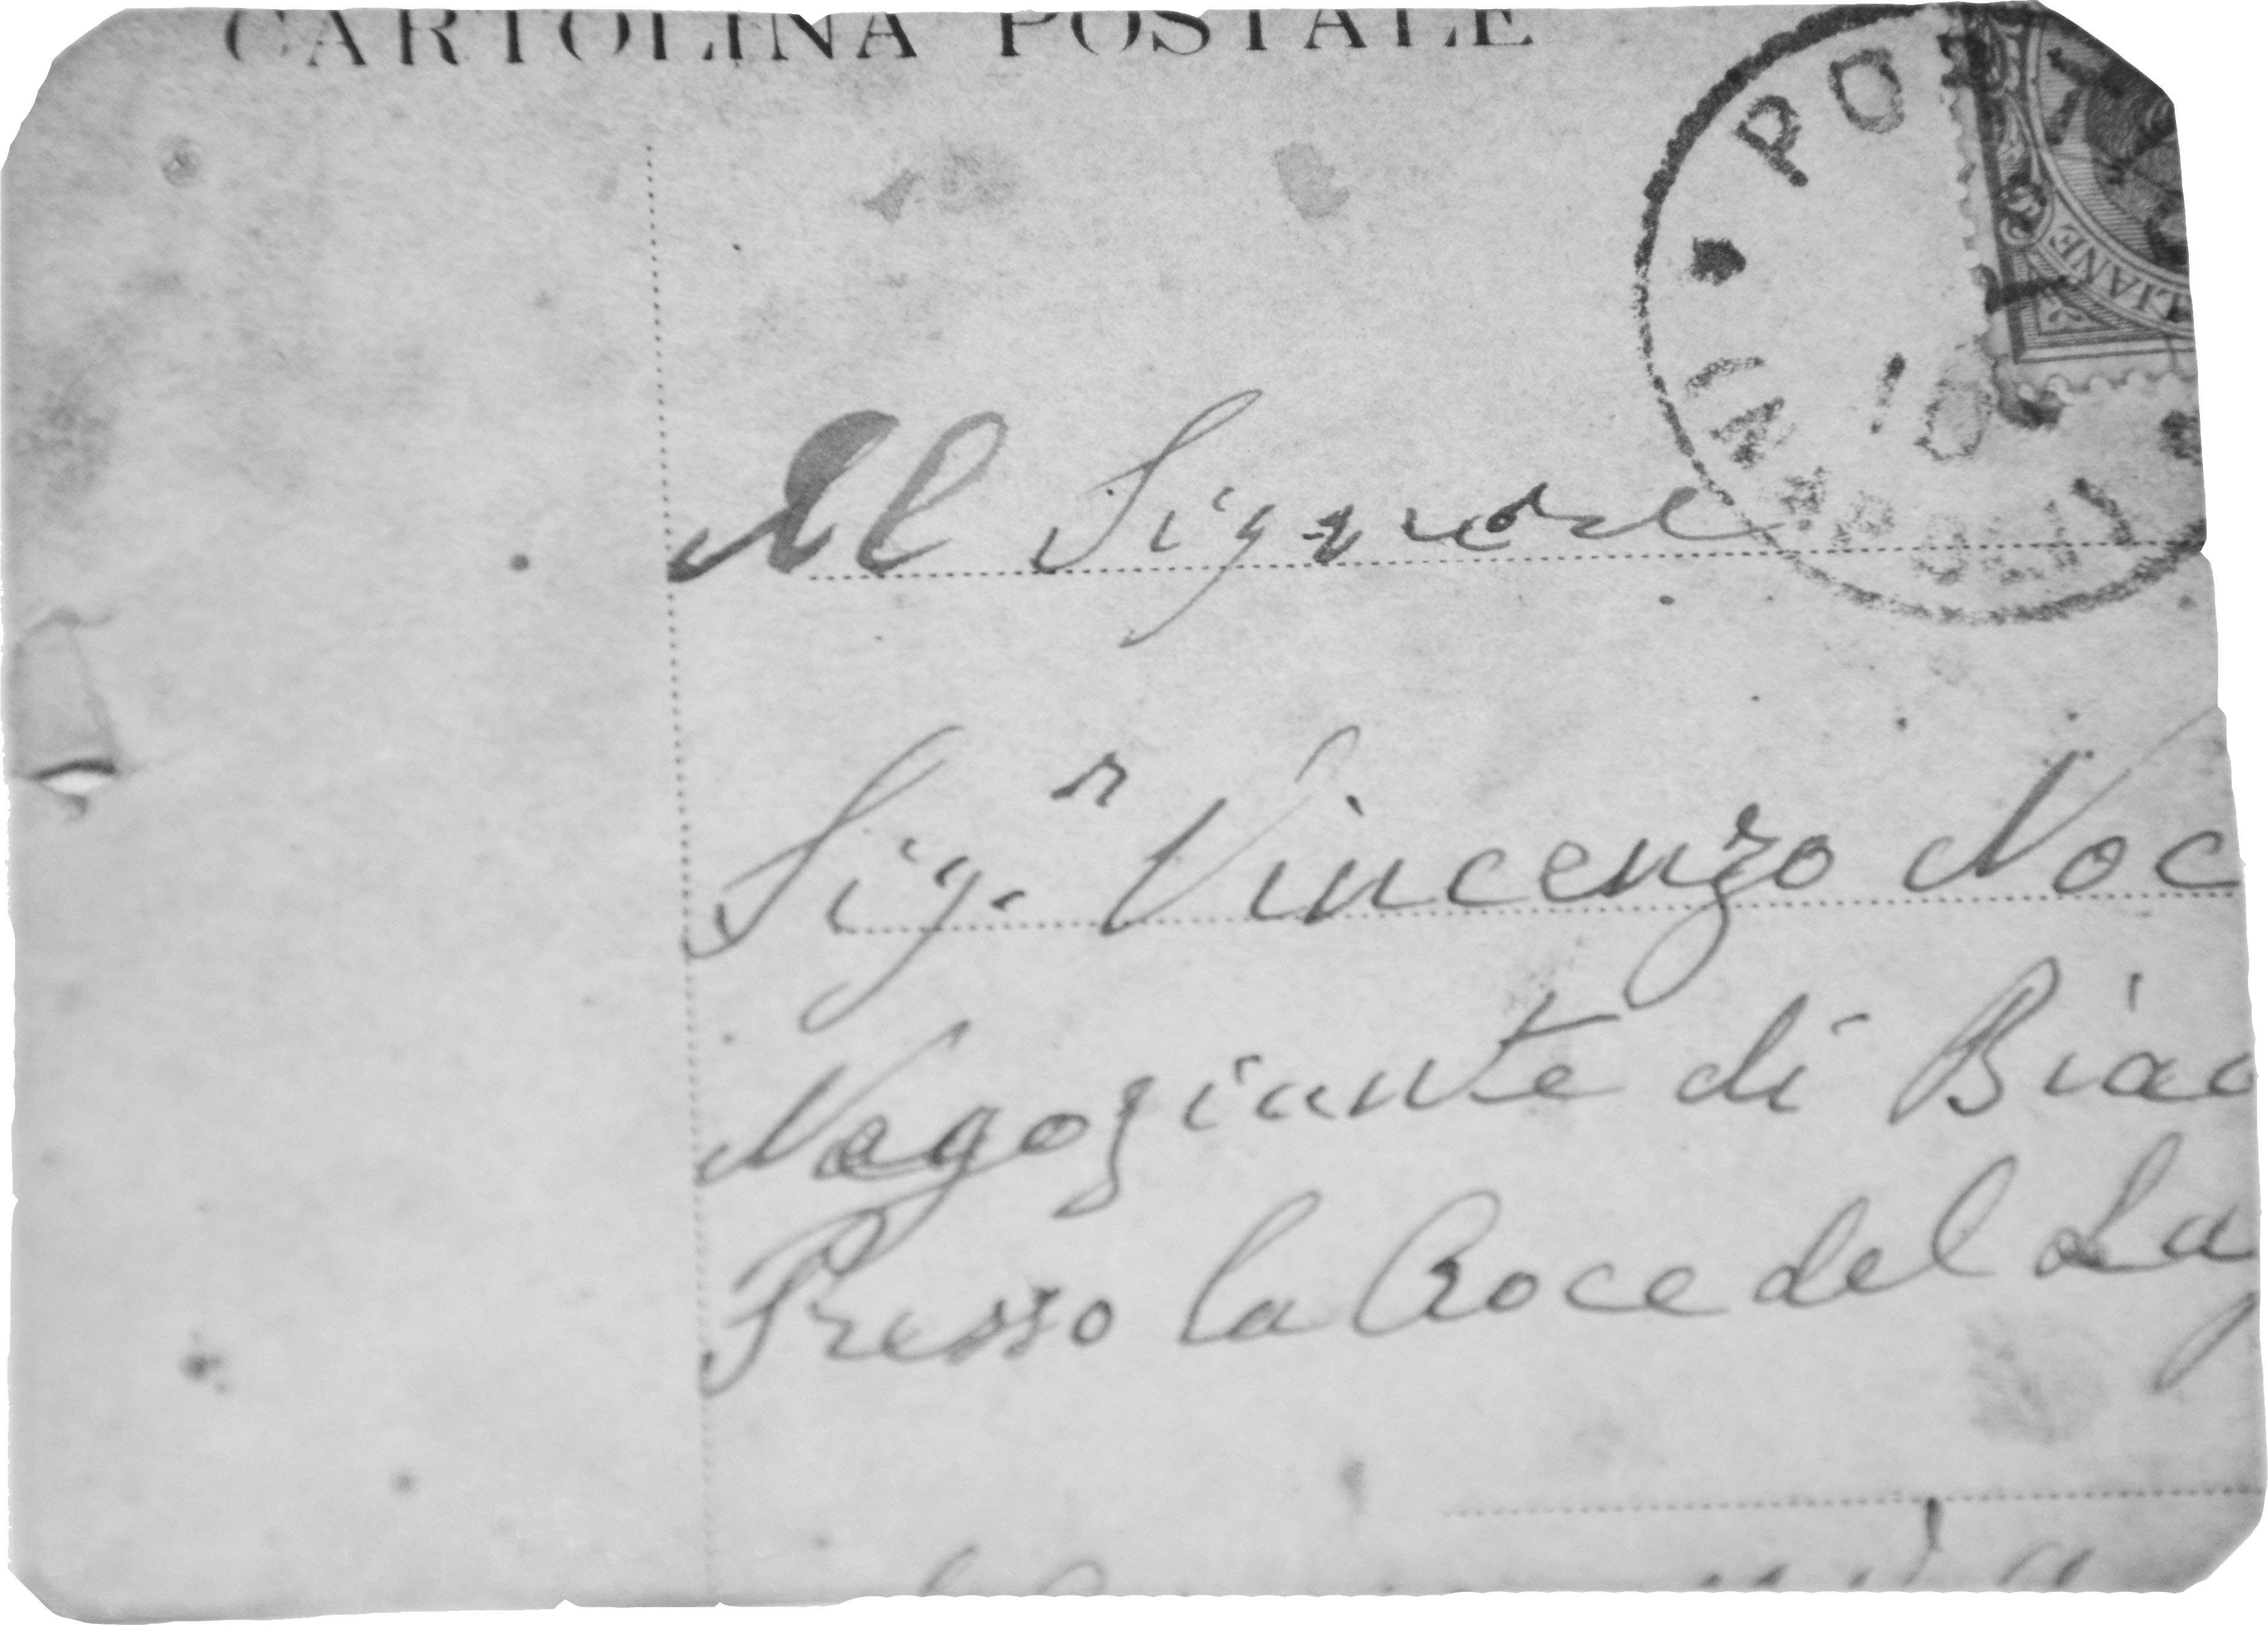 CARTOLINA POSTALE
PO
10
(NAPOLI)
LIANE
Al Signore
Sig.r Vincenzo Noc
Negoziante di Biac
Presso la Croce del Lag